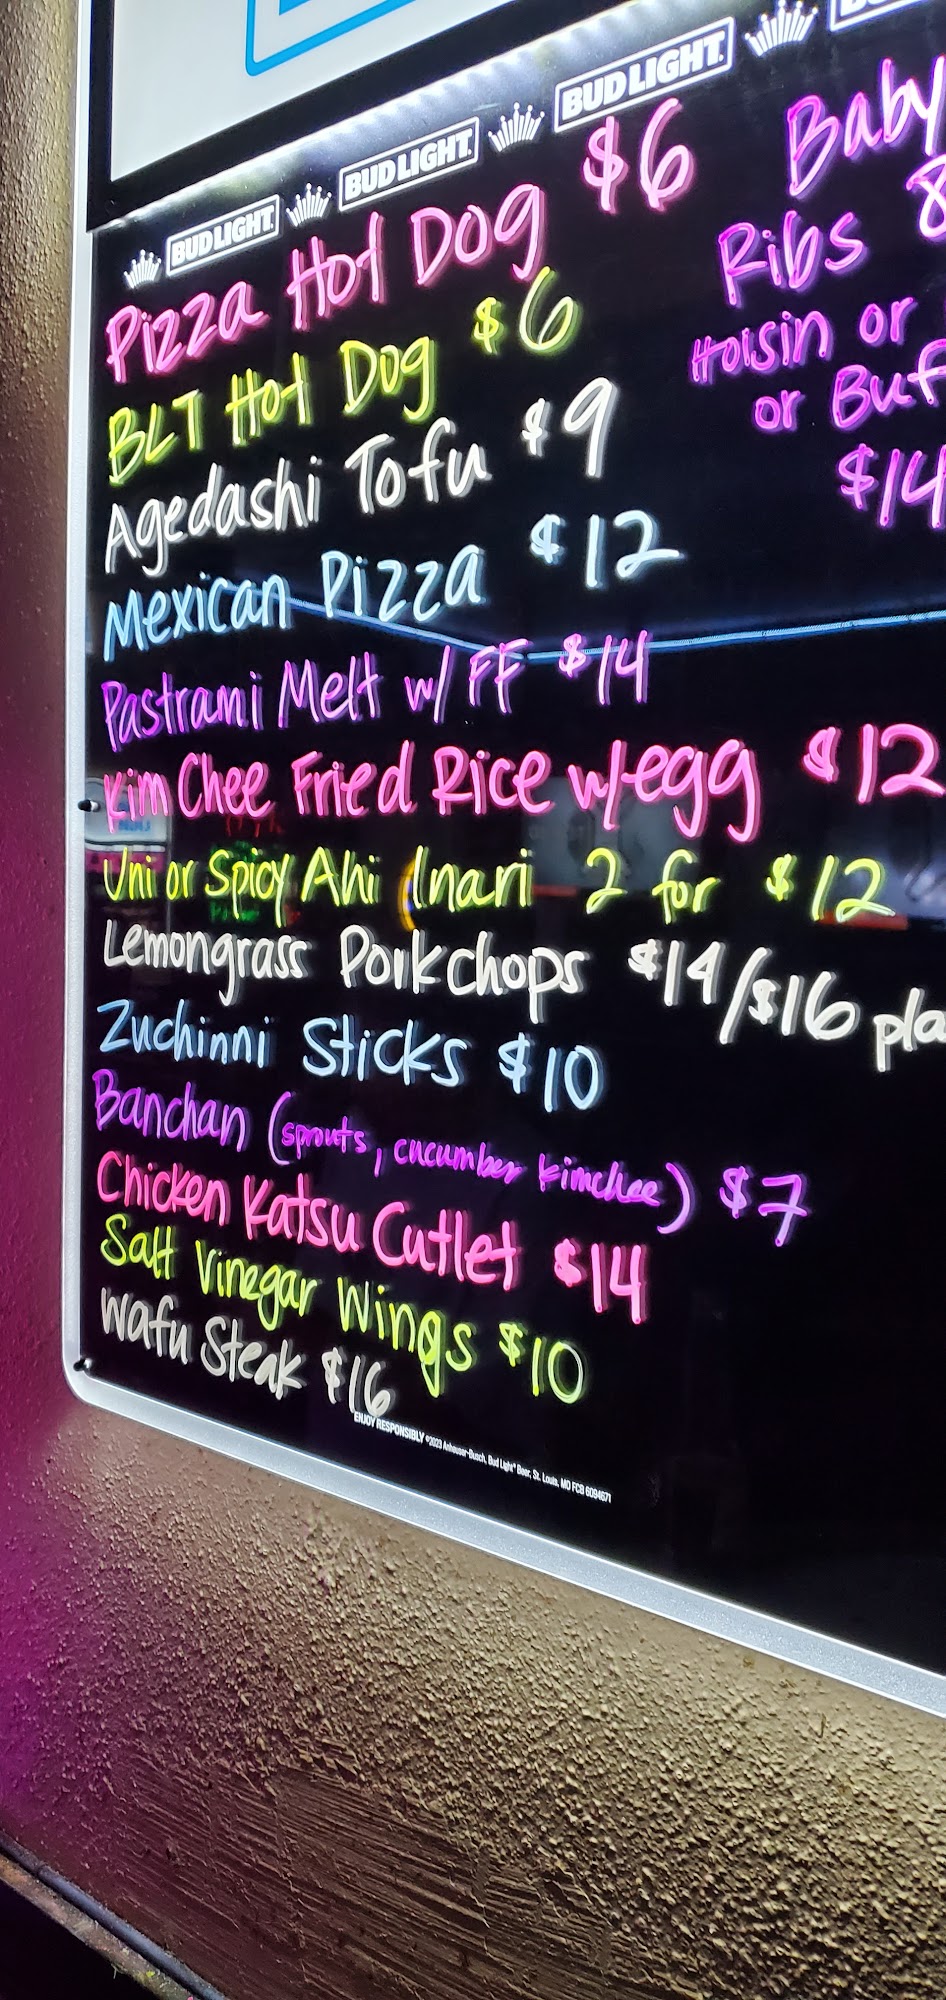 BUD LIGHT. BUD LIGHT. BUD LIGHT.
Pizza Hot Dog $6
BLT Hot Dog $6
Agedashi Tofu $9
Mexican Pizza $12
Pastrami Melt w/ FF $14
Kim Chee Fried Rice w/egg $12
Uni or Spicy Ahi Inari 2 for $12
Lemongrass Porkchops $14/$16
Zuchinni Sticks $10
Banchan (sprouts, cucumber kimchee) $7
Chicken Katsu Cutlet $14
Salt Vinegar Wings $10
Wafu Steak $16
Baby
Ribs
Hoisin or
or
$14
ENJOY RESPONSIBLY ©2023 Anheuser-Busch, Bud Light® Beer, St. Louis, MO FCB 6094671